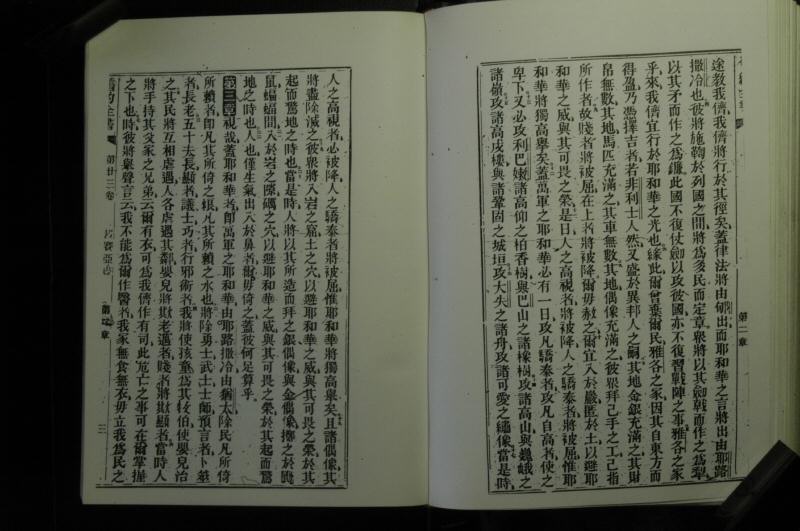 途敎我儕我儕將行於其徑矣蓋律法將由郇出而耶和華之言將出由耶路
撒冷也彼將施鞫於列國之間將爲多民而定章眾將以其劍戟而作之爲犁
以其矛而作之爲鐮此國不復仗劍以攻彼國亦不復習戰陣之事雅各之家
乎來我儕宜行於耶和華之光也緣此爾曾棄爾民雅各之家因其自東方而
得盈乃憑擇吉者若非利士人然又盛於異邦人之嗣其地金銀充滿之其財
帛無數其地馬匹充滿之其車無數其地偶像充滿之彼眾拜己手之工己指
所作者故賤者將被屈在上者將被降爾毋赦之爾宜入於巖匿於土以避耶
和華之威與其可畏之榮是日人之高視者將被降人之驕泰者將被屈惟耶
和華將獨高舉矣蓋萬軍之耶和華必有一日攻凡驕泰者攻凡自高者使之
卑下又必攻利巴嫩諸高仰之柏香樹與巴山之諸橡樹攻諸高山與巍峨之
諸嶺攻諸高戍樓與諸鞏固之城垣攻大失之諸舟攻諸可愛之繡像當是時
第二章
人之高視者必被降人之驕泰者將被屈惟耶和華將獨高舉矣且諸偶像其
將盡除滅之彼眾將入岩之窟土之穴以避耶和華之威與其可畏之榮於其
起而驚地之時也當是時人將以其所造而拜之銀偶像與金偶像擲之於鼴
鼠蝙蝠間入於岩之隙磵之穴以避耶和華之威與其可畏之榮於其起而驚
地之時也人也僅生氣出入於鼻者爾毋倚之蓋彼何足算乎
第三章視哉蓋耶和華者卽萬軍之耶和華由耶路撒冷由猶太除民凡所倚
所賴者卽凡其所倚之糧凡其所賴之水也將除勇士武士士師預言者卜筮
者長老五十夫長顯者議士巧者行邪術者我將使孩童爲其牧伯使嬰兒治
之其民將互相虐遇人各虐遇其鄰嬰兒將欺老邁者賤者將欺顯者當時人
將手持其父家之兄弟云爾有衣可爲我儕作有司此危亡之事可在爾掌握
之下也時彼將舉聲言云我不能爲爾作醫者我家無食無衣毋立我爲民之
舊約全書 第廿三卷 以賽亞書 第三章 三